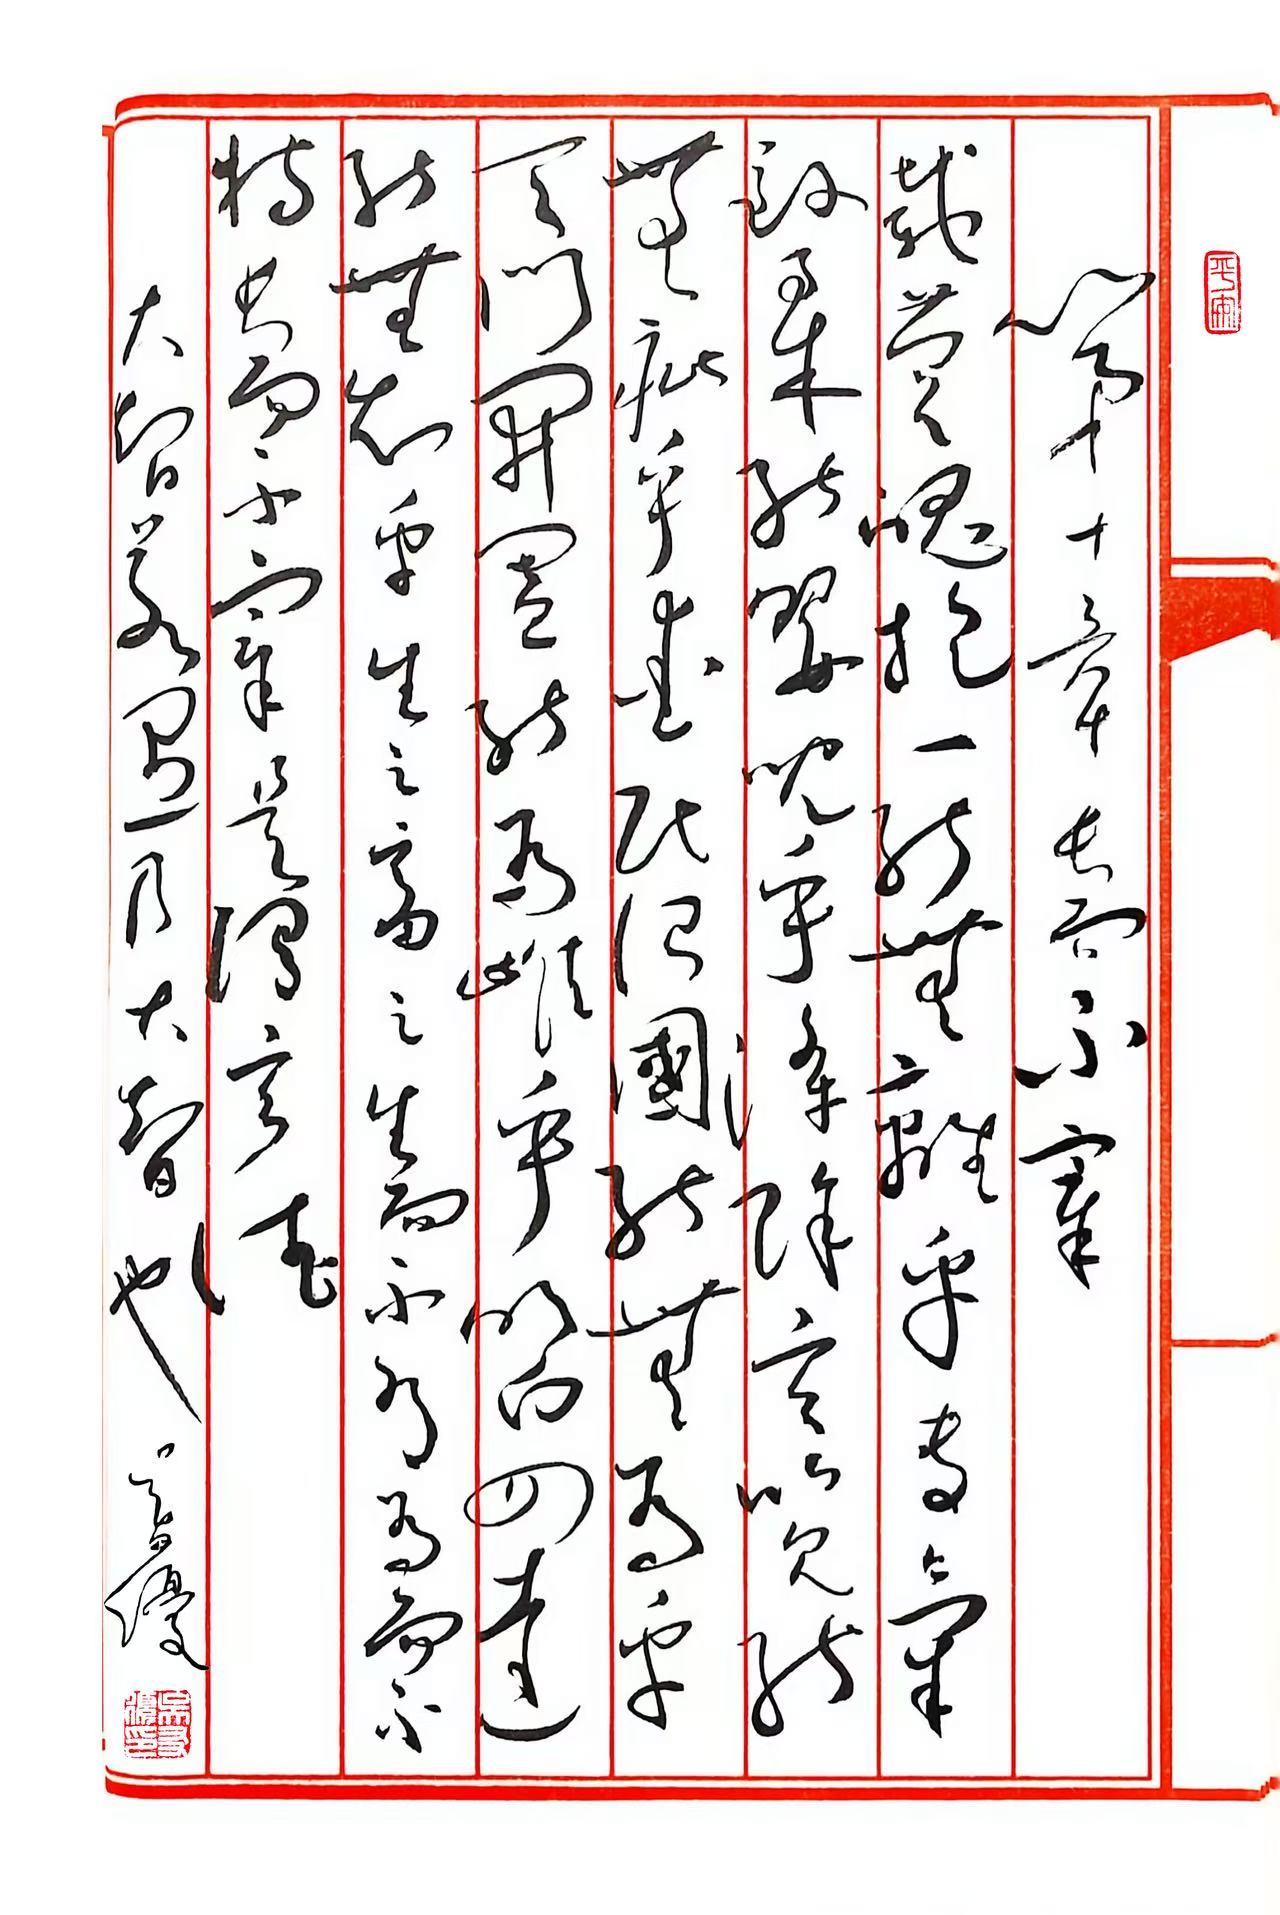 第十章 長而不宰
載營魄抱一能無離乎專氣
致柔能嬰兒乎滌除玄覽能
無疵乎愛民治國能無為乎
天門開闔能為雌乎明白四達
能無知乎生之畜之生而不有為而不
恃長而不宰是謂玄德
大智若愚乃大智也